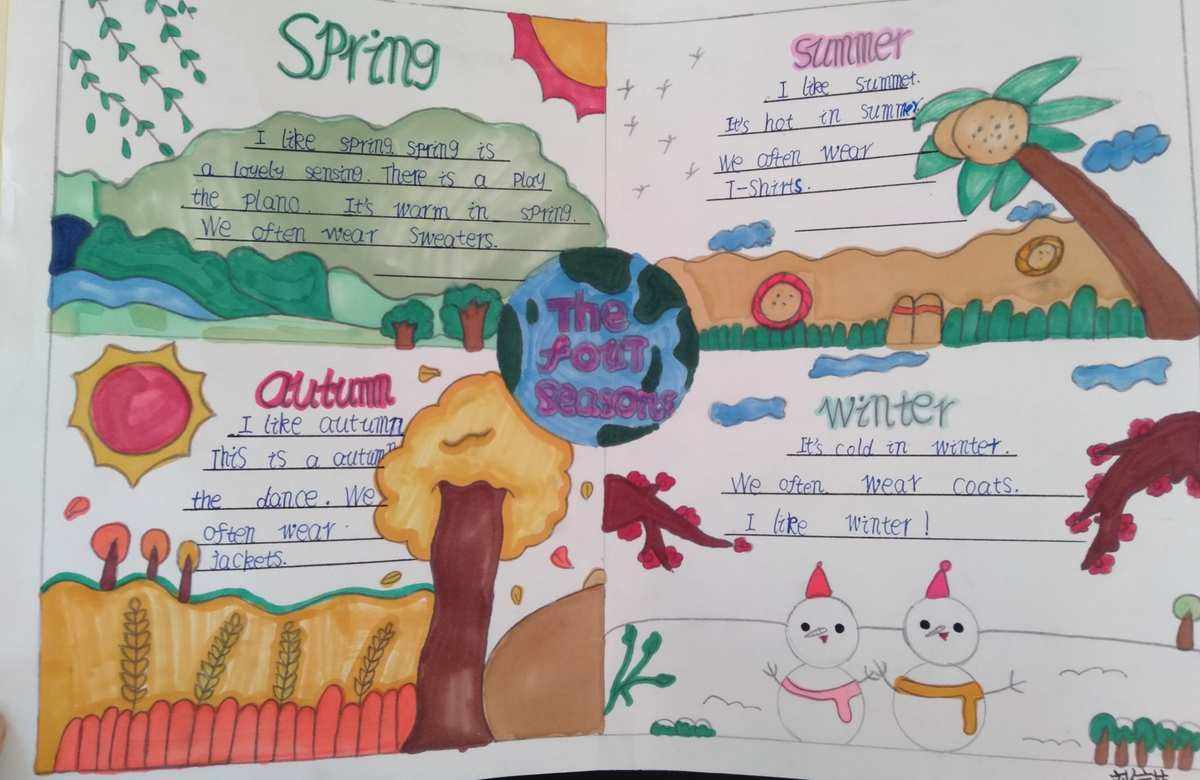 Spring
I like spring spring is
a lovely sensing. There is a play
the piano. It's warm in spring.
We often wear sweaters.
Summer
I like summer.
It's hot in summer
We often wear
T-shirts.
The
four
seasons
autumn
I like autumn
This is a autumn
the dance. We
often wear.
jackets.
winter
It's cold in winter.
We often wear coats.
I like winter!